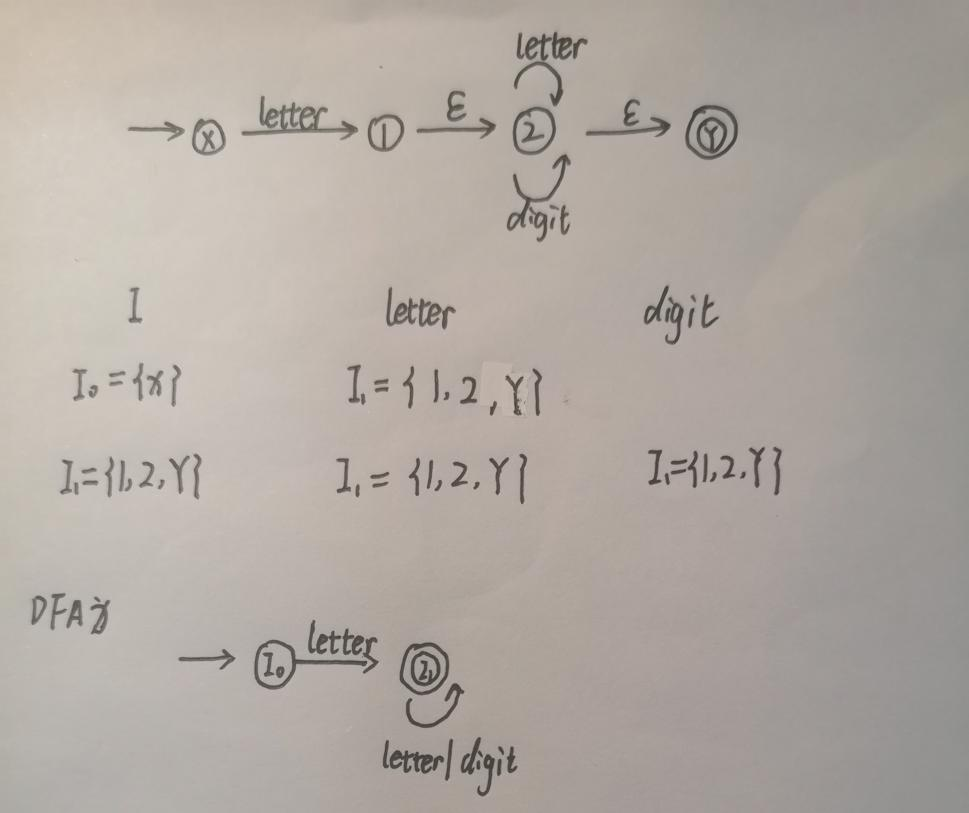 letter
letter ε ε
X 1 2 Y
digit
I letter digit
I₀ = {x} I₁ = { 1, 2, Y}
I₁ = {1, 2, Y} I₁ = {1, 2, Y} I₁ = {1, 2, Y}
DFA为
letter
I₀ I₁
letter| digit